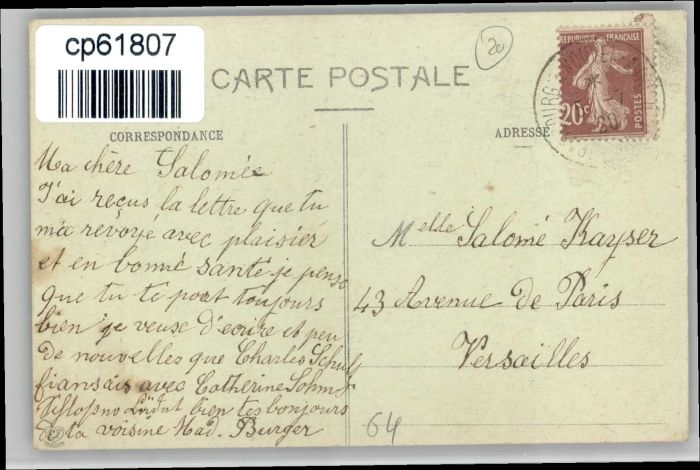 cp61807
20
CARTE POSTALE
CORRESPONDANCE
ADRESSE
REPUBLIQUE FRANÇAISE
20c
POSTES
Ma chère Salomée
J'ai reçus la lettre que tu
m'a révoyé avec plaisier
et en bonne santé je pense
que tu te poat toujours
bien je veuse d'ecrire et peu
de nouvelles que Charles Schulf
fiansais avec Catherine Sohm
bien tes bonjours
de ta voisine Mad. Burger
Melle Salomé Kayser
43 Avenue de Paris
Versailles
64